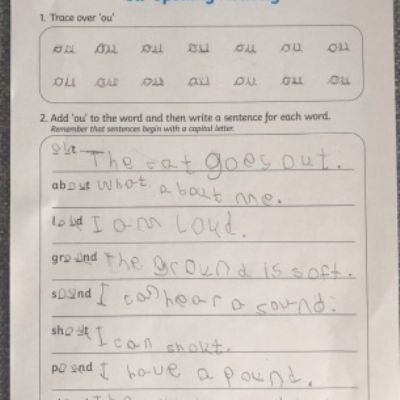 1. Trace over 'ou'
ou ou ou ou ou ou ou
ou ou ou ou ou ou ou
2. Add 'ou' to the word and then write a sentence for each word.
Remember that sentences begin with a capital letter.
out The cat goes out.
about what about me.
loud I am Loud.
ground The ground is soft.
sound I can hear a sound.
shout I can shout.
pound I have a pound.